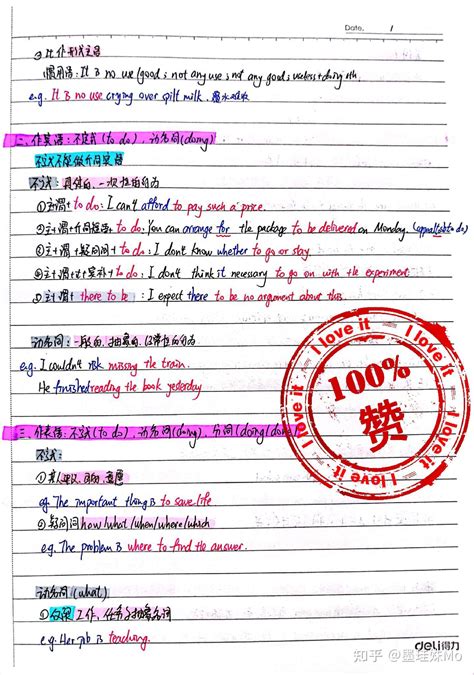 Date. 1
③ It 作形式主语
惯用语: It is no use/good; not any use; not any good; useless + doing sth.
e.g. It is no use crying over spilt milk. 覆水难收
二、作宾语: 不定式(to do), 动名词(doing)
不定式不能做介词宾语
不定式: 具体的、一次性的行为
①主+谓+to do: I can't afford to pay such a price.
②主+谓+介词+宾语+to do: You can arrange for the package to be delivered on Monday. (appeal to sb to do)
③主+谓+疑问词+to do: I don't know whether to go or stay.
④主+谓+it+宾补+to do: I don't think it necessary to go on with the experiment
⑤主+谓+there to be: I expect there to be no argument about this.
动名词: 一般的, 抽象的, 习惯性的行为
e.g. I couldn't risk missing the train.
He finished reading the book yesterday
三、作表语: 不定式(to do), 动名词(doing), 分词(doing/done
不定式:
eg. The important thing is to save life.
②疑问词 how/what/when/where/which
eg. The problem is where to find the answer.
动名词 (what)
工作, 任务与抽象名词
e.g. Her job is teaching.
I love it
I love it
I love it
100%
赞
I love it
I love it
deli得力
知乎 @墨珄姝Mo